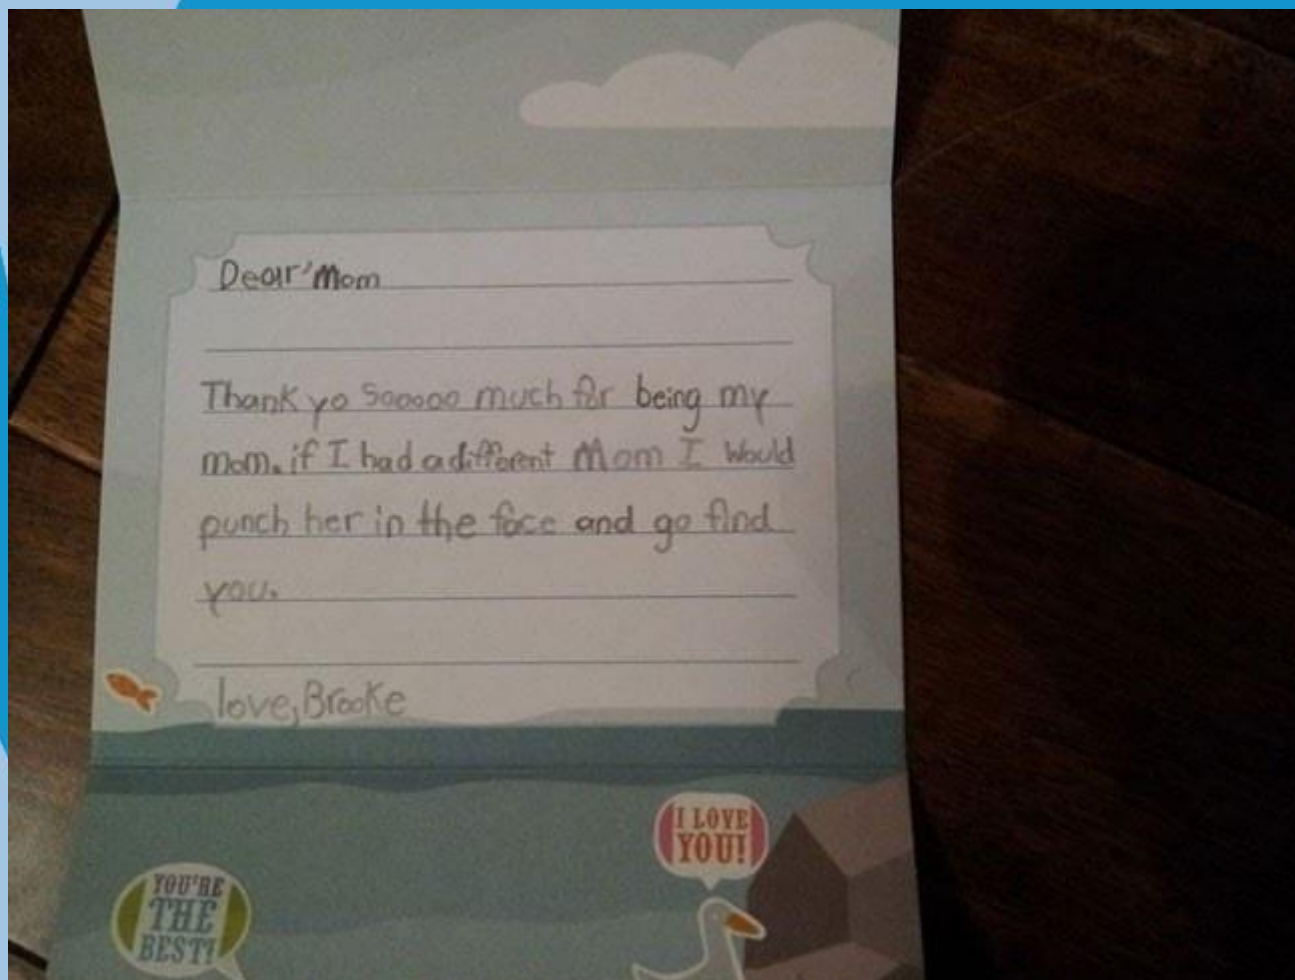 Dear'Mom
Thank yo sooooo much for being my
mom. if I had a different Mom I would
punch her in the face and go find
you.
love, Brooke
I LOVE
YOU!
YOU'RE
THE
BEST!